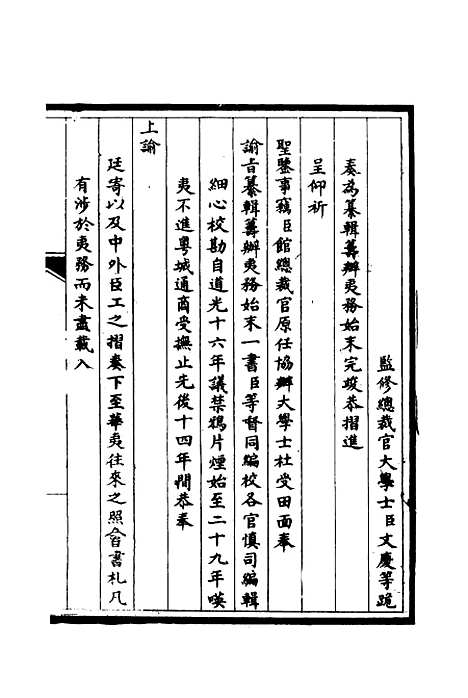 監修總裁官大學士臣文慶等跪
奏為纂輯籌辦夷務始末完竣恭摺進
呈仰祈
聖鑒事竊臣館總裁官原任協辦大學士杜受田面奉
諭旨纂輯籌辦夷務始末一書臣等督同編校各官慎司編輯
細心校勘自道光十六年議禁鴉片煙始至二十九年㗲
夷不進粵城通商受撫止先後十四年間恭奉
上諭
廷寄以及中外臣工之摺奏下至華夷往來之照會書札凡
有涉於夷務而未盡載入